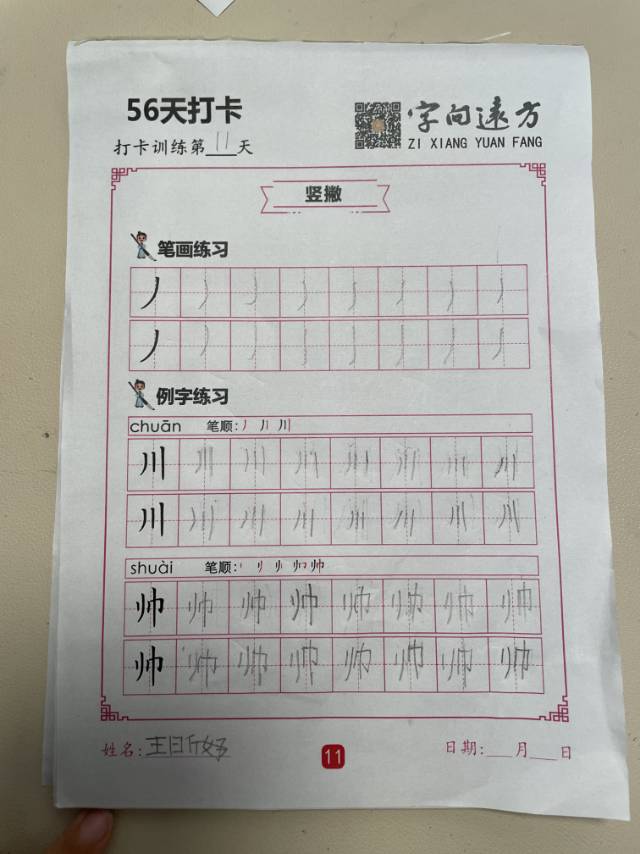 56天打卡
字向远方
打卡训练第11天
ZI XIANG YUAN FANG
竖撇
笔画练习
丿丿丿丿丿丿丿丿
丿丿丿丿丿丿丿丿
例字练习
chuān 笔顺: 丿 丿丨 川
川川川川川川川川
川川川川川川川川
shuài 笔顺:
帅帅帅帅帅帅帅帅
帅帅帅帅帅帅帅帅
姓名:王
11
日期:___月___日